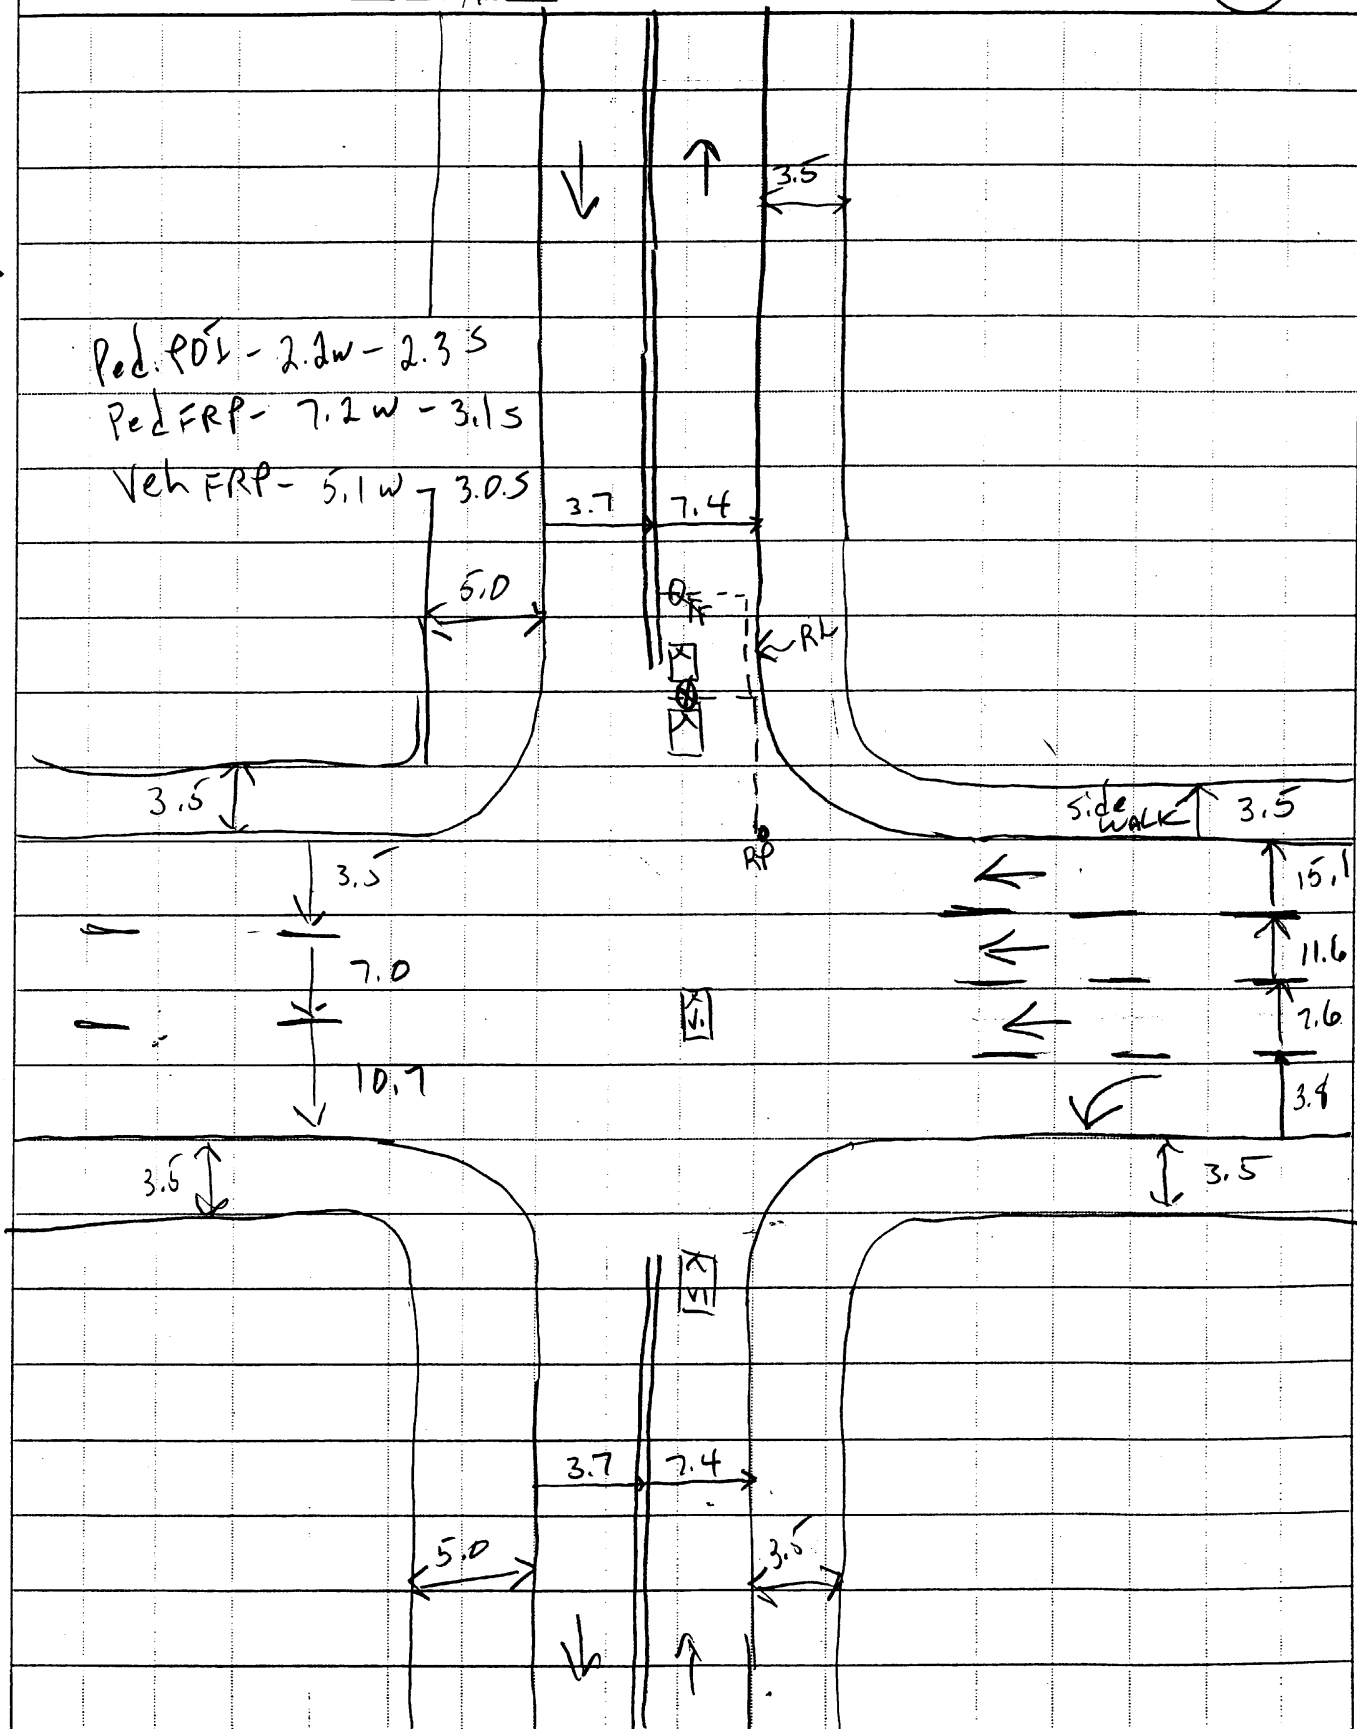 3.5
Ped. POI - 2.2w - 2.3 S
Ped FRP - 7.2 w - 3.1 s
Veh FRP - 5.1 w - 3.0.S
3.7 7.4
5.0
RL
3.5
Side WALK 3.5
RP
3.5 15.1
7.0 11.6
V1 7.6
10.7 3.8
3.5 3.5
V1
3.7 7.4
5.0 3.5